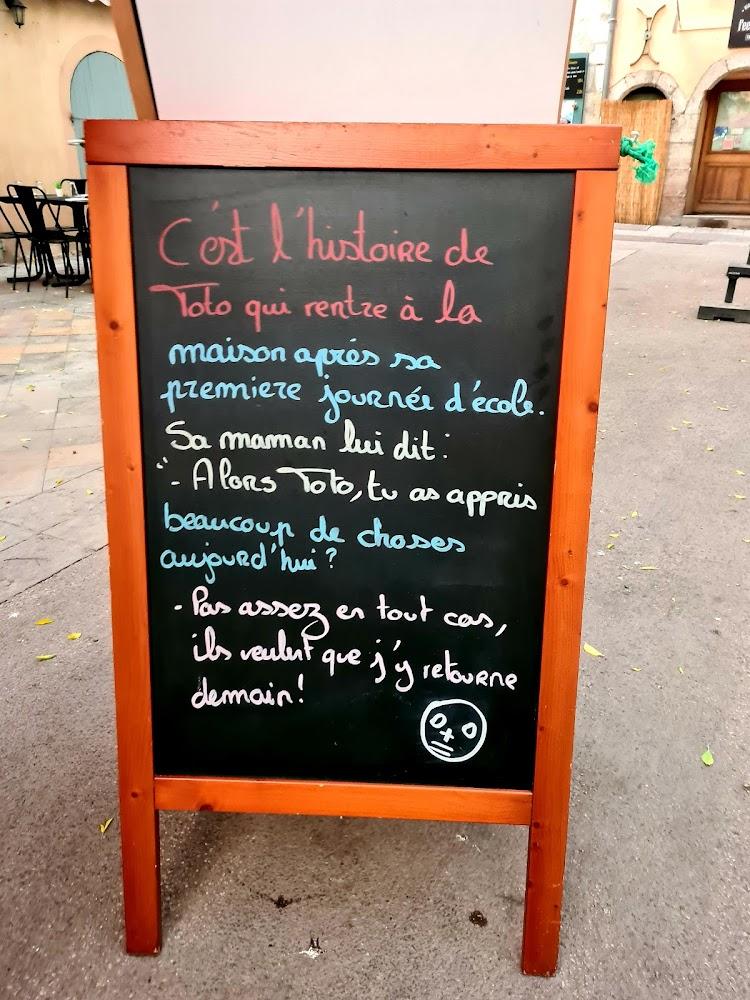 C'est l'histoire de
Toto qui rentre à la
maison après sa
premiere journée d'école.
Sa maman lui dit :
"- Alors Toto, tu as appris
beaucoup de choses
aujourd'hui ?
- Pas assez en tout cas,
ils veulent que j'y retourne
demain !